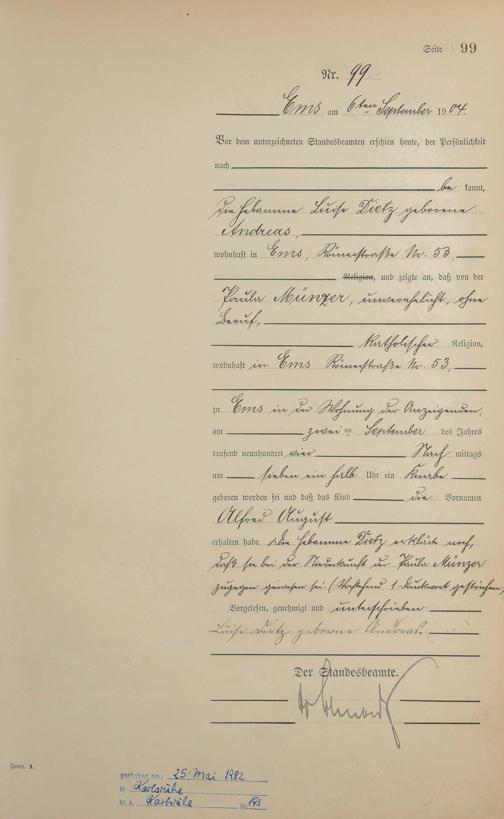 Seite 99
Nr. 99.
Ems am 6ten September 1904.
Vor dem unterzeichneten Standesbeamten erschien heute, der Persönlichkeit
nach
be kannt,
die Hebamme Luise Dietz geborene
Andreas,
wohnhaft in Ems, Römerstraße Nr. 53,
Religion, und zeigte an, daß von der
Paula Münzer, unverehelicht, ohne
Beruf,
katholischer Religion,
wohnhaft in Ems Römerstraße Nr. 53,
zu Ems in der Wohnung der Anzeigenden,
am zweiten September des Jahres
tausend neunhundert vier Nach mittags
um sieben ein halb Uhr ein Knabe
geboren worden sei und daß das Kind die Vornamen
Alfred August
erhalten habe. Die Hebamme Dietz erklärte noch,
daß sie bei der Niederkunft der Paula Münzer
zugegen gewesen sei. (Vorstehend 1 Druckwort gestrichen)
Vorgelesen, genehmigt und unterschrieben
Luise Dietz geborene Andreas.
Der Standesbeamte.
Form. A.
gestorben am: 25. Mai 1982
in Karlsruhe
St. A. Karlsruhe Nr.